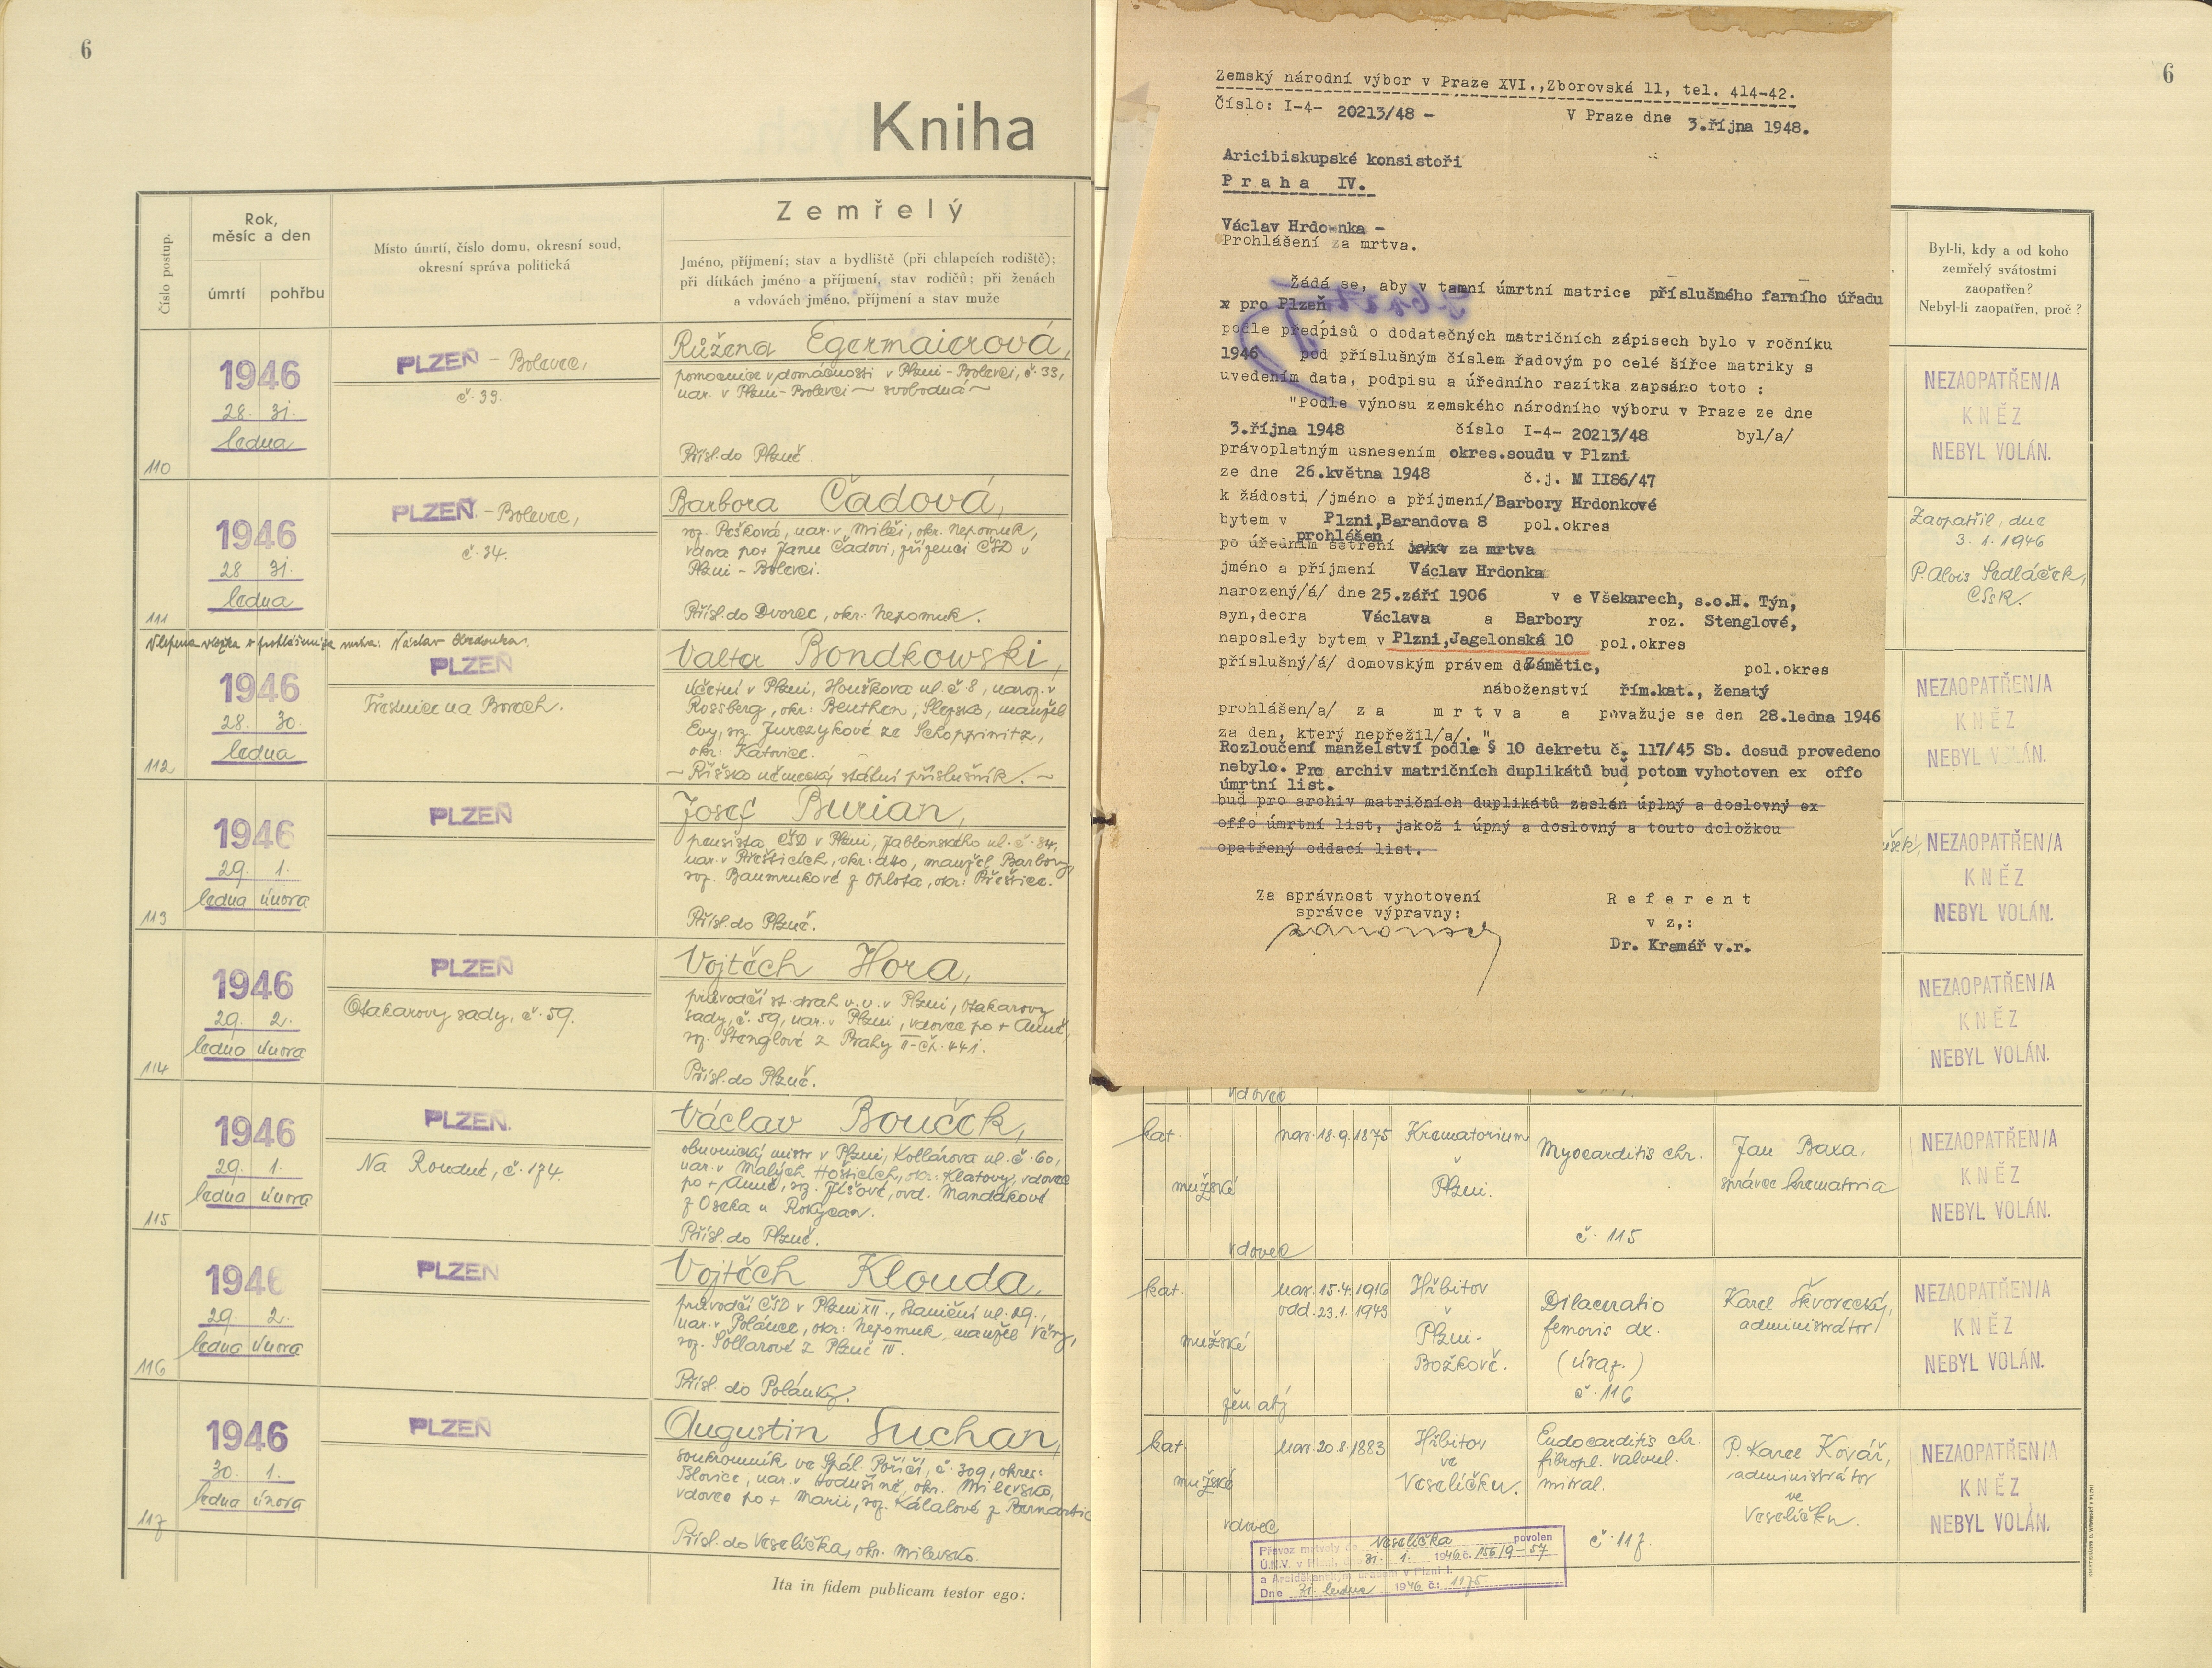 6
Kniha
Číslo postup.
Rok,
měsíc a den
úmrtí
pohřbu
Místo úmrtí, číslo domu, okresní soud,
okresní správa politická
Zemřelý
Jméno, příjmení; stav a bydliště (při chlapcích rodiště);
při dítkách jméno a příjmení, stav rodičů; při ženách
a vdovách jméno, příjmení a stav muže
110
1946
28. 31.
ledna
PLZEŇ - Bolevec,
č. 33.
Růžena Egermaierová,
pomocnice v domácnosti v Plzni - Bolevci, č. 33,
nar. v Plzni - Bolevci ~ svobodná ~
Přísl. do Plzně.
111
1946
28 31.
ledna
PLZEŇ - Bolevec,
č. 34.
Barbora Čadová,
roz. Pešková, nar. v Mileči, okr. Nepomuk,
vdova po + Janu Čadovi, zřízenci ČSD v
Plzni - Bolevci.
Přísl. do Dvorec, okr: Nepomuk.
Vlepena vložka o prohlášení za mrtva: Václav Hrdonka.
112
1946
28. 30.
ledna
PLZEŇ
Trestnice na Borech.
Valter Bondkowski,
účetní v Plzni, Houškova ul. č 8, naroz. v
Rossberg, okr: Beuthen, Slezsko, manžel
Evy, roz. Jurczykové ze Schoppinitz,
okr: Katovice.
~ Říšsko německý státní příslušník. ~
113
1946
29. 1.
ledna února
PLZEŇ
Josef Burian,
pensista ČSD v Plzni, Jablonského ul. č. 84,
nar. v Přešticích, okr: dto, manžel Barbory,
roz. Baumrukové z Oplota, okr: Přeštice.
Přísl. do Plzně.
114
1946
29. 2.
ledna února
PLZEŇ
Otakarovy sady, č. 59.
Vojtěch Hora,
průvodčí st. drah v. v. v Plzni, Otakarovy
sady, č. 59, nar. v Plzni, vdovec po + Anně,
roz. Stenglové z Prahy II - čp. 441.
Přísl. do Plzně.
115
1946
29. 1.
ledna února
PLZEŇ.
Na Roudné, č. 174.
Václav Bouček,
obuvnický mistr v Plzni, Kollárova ul. č. 60,
nar. v Malých Hošticích, okr: Klatovy, vdovec
po + Anně, roz. Jíšové, ovd. Mandákové
z Oseka u Rokycan.
Přísl. do Plzně.
116
1946
29. 2.
ledna února
PLZEŇ
Vojtěch Klouda,
průvodčí ČSD v Plzni XII., Staniční ul. 29.,
nar. v Polánce, okr: Nepomuk, manžel Věry,
roz. Sóllarové z Plzně IV.
Přísl. do Polánky.
117
1946
30. 1.
ledna února
PLZEŇ
Augustin Suchan,
soukromník ve Spál. Poříčí, č. 309, okres:
Blovice, nar. v Hodušíně, okr. Milevsko,
vdovec po + Marii, roz. Kálalové z Bernartic
Přísl. do Veselíčka, okr. Milevsko.
Ita in fidem publicam testor ego:
6
Zemský národní výbor v Praze XVI.,Zborovská 11, tel. 414-42.
Číslo: I-4- 20213/48 - V Praze dne 3.října 1948.
Aricibiskupské konsistoři
Praha IV.
Václav Hrdonka -
Prohlášení za mrtva.
Žádá se, aby v tamní úmrtní matrice příslušného farního úřadu
x pro Plzeň
podle předpisů o dodatečných matričních zápisech bylo v ročníku
1946 pod příslušným číslem řadovým po celé šířce matriky s
uvedením data, podpisu a úředního razítka zapsáno toto :
"Podle výnosu zemského národního výboru v Praze ze dne
3.října 1948 číslo I-4- 20213/48 byl/a/
právoplatným usnesením okres.soudu v Plzni
ze dne 26.května 1948 č.j. M II86/47
k žádosti /jméno a příjmení/Barbory Hrdonkové
bytem v Plzni,Barandova 8 pol.okres
prohlášen
po úředním šetření za mrtva
jméno a příjmení Václav Hrdonka
narozený/á/ dne 25.září 1906 v e Všekarech, s.o.H. Týn,
syn,dcera Václava a Barbory roz. Stenglové,
naposledy bytem v Plzni,Jagelonská 10 pol.okres
příslušný/á/ domovským právem do Zámětic, pol.okres
náboženství řím.kat., ženatý
prohlášen/a/ za mrtva a považuje se den 28.ledna 1946
za den, který nepřežil/a/. "
Rozloučení manželství podle § 10 dekretu č. 117/45 Sb. dosud provedeno
nebylo. Pro archiv matričních duplikátů buď potom vyhotoven ex offo
úmrtní list.
buď pro archiv matričních duplikátů zaslán úplný a doslovný ex
offo úmrtní list, jakož i úpný a doslovný a touto doložkou
opatřený oddací list.
Za správnost vyhotovení
správce výpravny:
Referent
v z,:
Dr. Kramář v.r.
Byl-li, kdy a od koho
zemřelý svátostmi
zaopatřen?
Nebyl-li zaopatřen, proč ?
NEZAOPATŘEN/A
KNĚZ
NEBYL VOLÁN.
Zaopatřil, dne
3. 1. 1946
P. Alois Sedláček,
CSsR.
NEZAOPATŘEN/A
KNĚZ
NEBYL VOLÁN.
NEZAOPATŘEN/A
KNĚZ
NEBYL VOLÁN.
NEZAOPATŘEN/A
KNĚZ
NEBYL VOLÁN.
vdovec
kat.
mužské
vdovec
nar. 18. 9. 1875
Krematorium
v
Plzni.
Myocarditis chr.
č. 115
Jan Baxa,
správce krematoria
NEZAOPATŘEN/A
KNĚZ
NEBYL VOLÁN.
kat.
mužské
ženatý
nar. 15. 4. 1916
odd. 23. 1. 1943
Hřbitov
v
Plzni-
Božkově.
Dilaceratio
femoris dx.
(úraz.)
č. 116
Karel Škvorecký,
administrátor
NEZAOPATŘEN/A
KNĚZ
NEBYL VOLÁN.
kat.
mužské
vdovec
nar. 20. 8. 1883
Hřbitov
ve
Veselíčku.
Endocarditis chr.
fibropl. valvul.
mitral.
č. 117.
P. Karel Kovář,
administrátor
ve
Veselíčku.
NEZAOPATŘEN/A
KNĚZ
NEBYL VOLÁN.
Převoz mrtvoly do Veselíčka povolen
Ú.N.V. v Plzni, dne 31. 1. 1946 č. 156/9-57
a Arciděkanským úřadem v Plzni I.
Dne 31. ledna 1946 č.: 1175